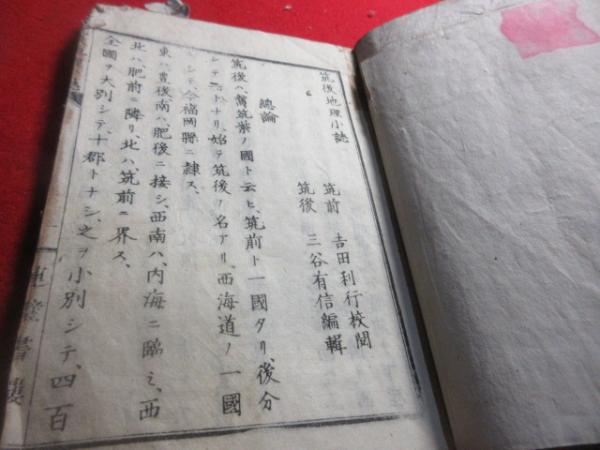 筑後地理小誌
筑前 吉田利行校閲
筑後 三谷有信編輯
總論
筑後ハ、舊筑紫ノ國ト云ヒ、筑前ト一國タリ、後分
シテ二トナリ、始テ筑後ノ名アリ、西海道ノ一國
ニシテ、今福岡縣ニ隷ス、
東ハ豊後南ハ肥後ニ接シ、西南ハ、内海ニ臨ミ、西
北ハ、肥前ニ隣リ、北ハ、筑前ニ界ス、
全國ヲ大別シテ、十郡トナシ、之ヲ小別シテ、四百
書樓